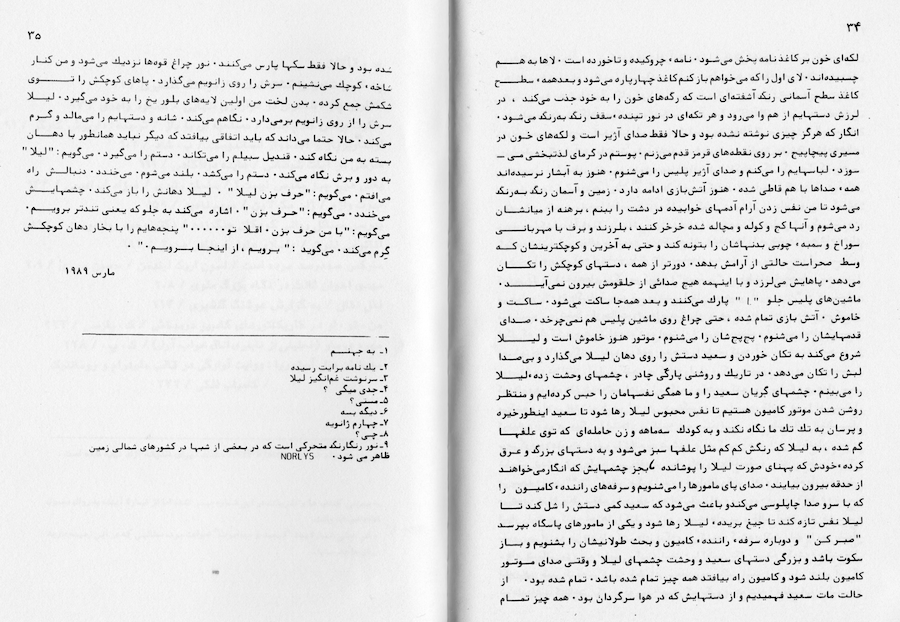 ۳۴
لکه‌ای خون بر کاغذ نامه پخش می‌شود. نامه، چروکیده و تاخورده است. لاها به هــم
چسبیده‌اند. لای اول را که می‌خواهم باز کنم کاغذ چهارپاره می‌شود و بعدهمه، سطــح
کاغذ سطح آسمانی رنگ آشفته‌ای است که رگه‌های خون را به خود جذب می‌کند، در
لرزش دستهایم از هم وا می‌رود و هر تکه‌ای در نور تینده، سقف رنگ به‌رنگ می‌شود.
انگار که هرگز چیزی نوشته نشده بود و حالا فقط صدای آژیر است و لکه‌های خون در
مسیری پیچاپیچ. بر روی نقطه‌های قرمز قدم می‌زنم. پوستم در گرمای لذتبخشی مـی ــ
سوزد. لباسهایم را می‌کنم و صدای آژیر پلیس را می‌شنوم. هنوز به آبشار نرسیده‌اند
همه، صداها با هم قاطی شده. هنوز آتش‌بازی ادامه دارد. زمین و آسمان رنگ به‌رنگ
می‌شود تا من نفس زدن آرام آدمهای خوابیده در دشت را ببینم، برهنه از میانشان
رد می‌شوم و آنها کج و کوله و مچاله شده خرخر کنند، بلرزند و برف با مهربـانـی
سوراخ و سمبه، چوبی بدنهاشان را بتونه کند و حتی به آخرین و کوچکترینشان کــه
وسط صحراست حالتی از آرامش بدهد. دورتر از همه، دستهای کوچکش را تکــان
می‌دهد. پاهایش می‌لرزد و با اینهمه هیچ صدائی از حلقومش بیرون نمی‌آیـــــد.
ماشین‌های پلیس جلو "" پارک می‌کنند و بعد همه‌جا ساکت می‌شود. ساکت و
خاموش. آتش بازی تمام شده، حتی چراغ روی ماشین پلیس هم نمی‌چرخد. صـدای
قدمهایشان را می‌شنوم. پچ‌پچ‌شان را می‌شنوم. موتور هنوز خاموش است و لیــــلا
شروع می‌کند به تکان خوردن و سعید دستش را روی دهان لیـلا می‌گذارد و بی‌صدا
لبش را تکان می‌دهد. در تاریک و روشنی پارگی چادر، چشمهای وحشت زده، لیـلا
را می‌بینم. چشمهای گریان سعید را و ما همگی نفسهامان را حبس کرده‌ایم و منتظر
روشن شدن موتور کامیون هستیم تا نفس محبوس لیـلا رها شود تا سعید اینطورخیره
و پرسان به تک تک ما نگاه نکند و به کودک سه‌ماهه و زن حامله‌ای که توی علفهـا
گم شده، به لیـلا که رنگش کم کم مثل علفها سبز می‌شود و به دستهای بزرگ و عـرق
کرده، خودش که پهنای صورت لیـلا را پوشانده بجز چشمهایش که انگارمی‌خواهند
از حدقه بیرون بیایند. صدای پای مامورها را می‌شنویم و سرفه‌های راننده، کامیـون را
که با سرو صدا چاپلوسی می‌کندو باعث می‌شود که سعید کمی دستش را شل کند تــا
لیـلا نفس تازه کند تا جیغ بریده، لیـلا رها شود و یکی از مامورهای پاسگاه بپرسـد
"صبر کـن" و دوباره سرفه، راننده، کامیون و بحث طولانیشان را بشنویم و بـــاز
سکوت باشد و بزرگی دستهای سعید و وحشت چشمهای لیـلا و وقتی صدای مـوتـور
کامیون بلند شود و کامیون راه بیافتد همه چیز تمام شده باشد. تمام شده بود. از
حالت مات سعید فهمیدیم و از دستهایش که در هوا سرگردان بود. همه چیز تمـــام
۳۵
شده بود و حالا فقط سگها پارس می‌کنند. نور چراغ قوه‌ها نزدیک می‌شود و من کنـار
شاخه، کوچک می‌نشینم. سرش را روی زانویم می‌گذارد. پاهای کوچکش را تـــوی
شکمش جمع کرده. بدن لخت من اولین لایه‌های بلور یخ را به خود می‌گیرد. لیــلا
سرش را از روی زانویم برمی‌دارد. نگاهم می‌کند. شانه و دستهایم را می‌مالد و گـرم
می‌کند. حالا حتما می‌داند که باید اتفاقی بیافتد که دیگر نباید همانطور با دهـان
بسته به من نگاه کند. قندیل سبیلم را می‌تکاند. دستم را می‌گیرد. می‌گویم: "لیلا"
به دور و برش نگاه می‌کند. دستم را می‌کشد. بلند می‌شوم. می‌خندد. دنبالـش راه
می‌افتم. می‌گویم: "حرف بزن لیـلا". لیـلا دهانش را باز می‌کند. چشمهایــش
می‌خندد. می‌گویم: "حرف بزن". اشاره می‌کند به جلو که یعنی تندتر برویـــم.
می‌گویم: "با من حرف بزن. اقلا تو......" پنجه‌هایم را با بخار دهان کوچکش
گرم می‌کند. می‌گوید: "برویم، از اینجـا بــرویــم."
مارس ۱۹۸۹
۱ـ به جهنــم
۲ـ یک نامه برایت رسیده
۳ـ سرنوشت غم‌انگیز لیلا
۴ـ جدی میگی ؟
۵ـ مستی؟
۶ـ دیگه بسه
۷ـ چهارم ژانویه
۸ـ چی؟
۹ـ نور رنگارنگ متحرکی است که در بعضی از شبها در کشورهای شمالی زمین
ظاهر می شود. NORLYS